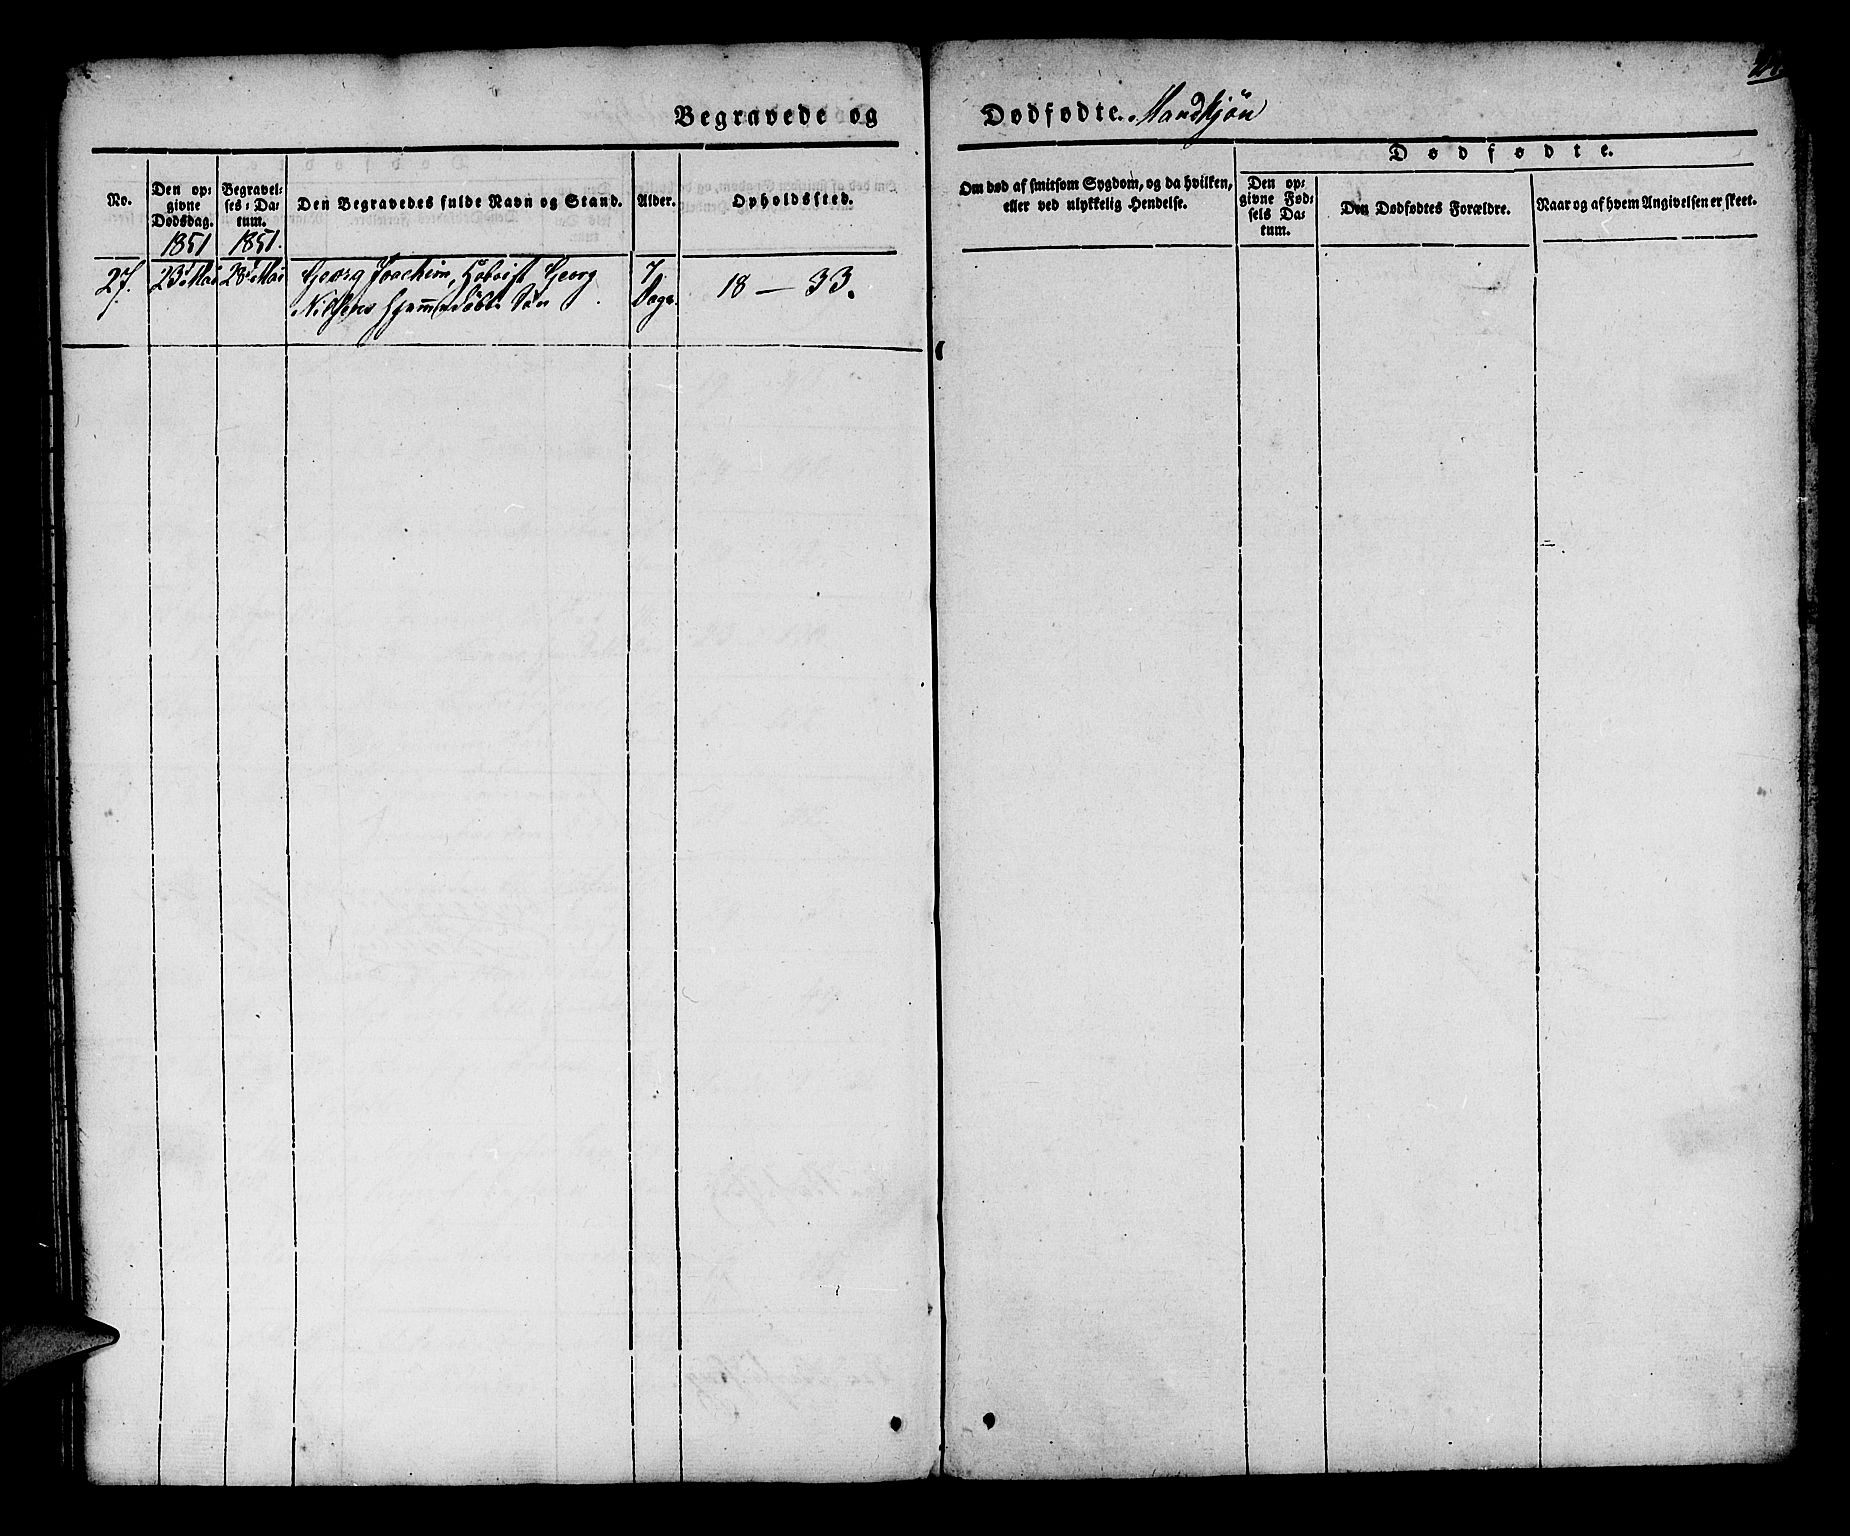 Begravede og Dødfødte. Mandkjön
No.
Den opgivne Dødsdag.
1851
Begravelses-Datum.
1851.
Den Begravedes fulde Navn og Stand.
Alder.
Opholdssted.
Om død af smitsom Sygdom, og da hvilken,
eller ved ulykkelig Hendelse.
Dødfødte.
Den opgivne Fødsels Datum.
Den Dødfødtes Forældre.
Naar og af hvem Angivelsen er skeet.
27. 23 Mai 28 Mai Georg Joachim, Hoboist Georg 7 18 — 33.
Nilsens Søn Dage.